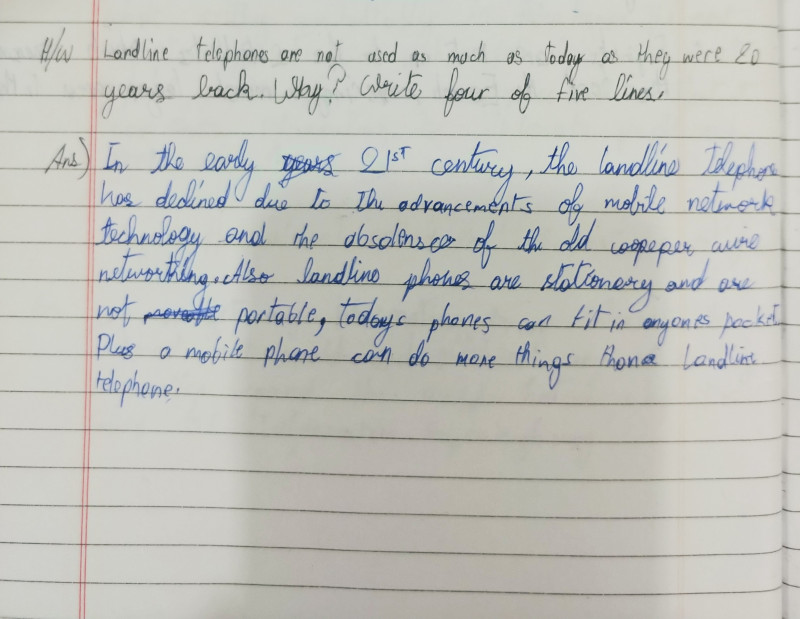 H/W Landline telephones are not used as much as today as they were 20
years back. Why? Write four of five lines.
Ans) In the early years 21st century, the landline telephone
has declined due to the advancements of mobile network
technology and the of the old coopeper wire
networking. Also landline phones are stationery and are
not portable, todays phones can fit in anyones pocket
Plus a mobile phone can do more things than a landline
telephone.